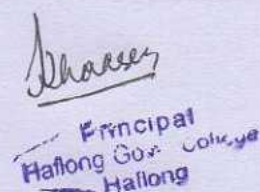 Principal
Haflong Gov. College
Haflong